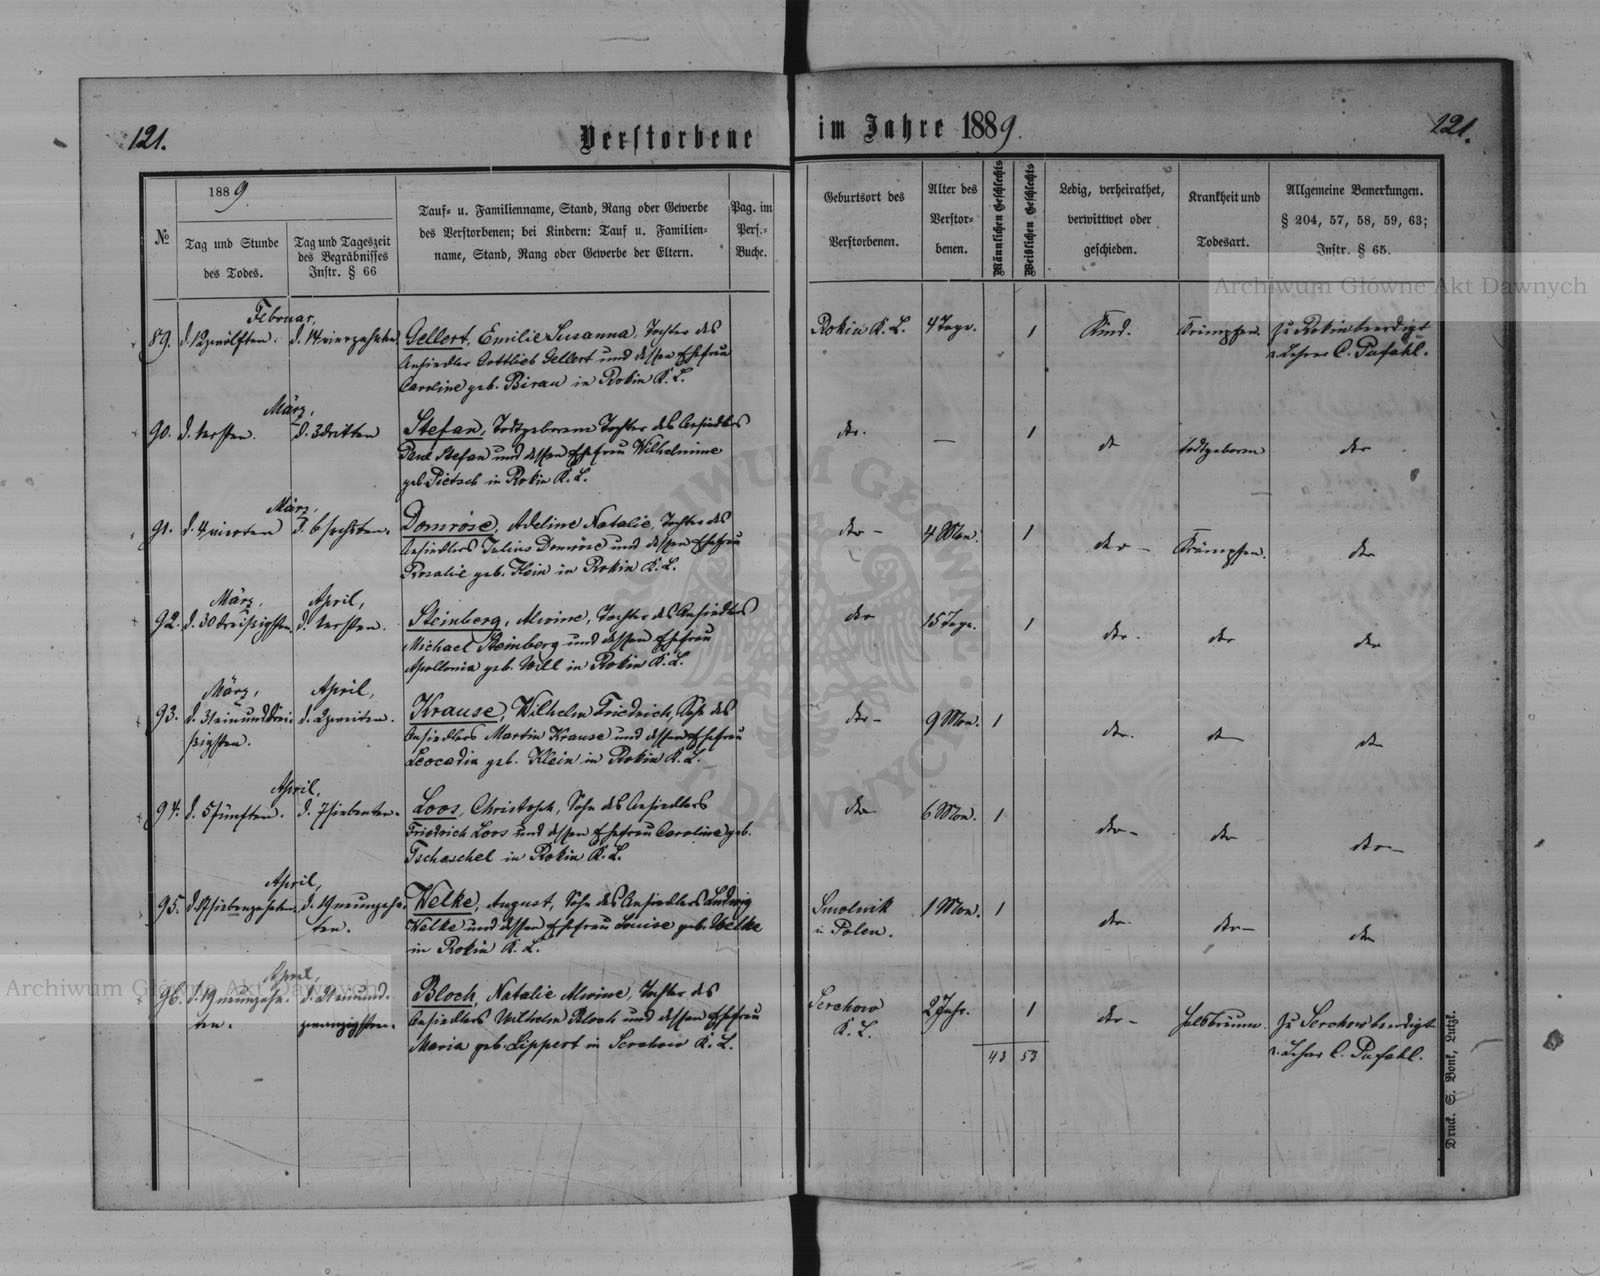 121.
Verstorbene im Jahre 1889.
121.
№
1889.
Tag und Stunde
des Todes.
Tag und Tageszeit
des Begräbnisses
Instr. § 66
Tauf- u. Familienname, Stand, Rang oder Gewerbe
des Verstorbenen; bei Kindern: Tauf u. Familien-
name, Stand, Rang oder Gewerbe der Eltern.
Pag. im
Pers.-
Buche.
Geburtsort des
Verstorbenen.
Alter des
Verstor-
benen.
Männlichen Geschlechts
Weiblichen Geschlechts
Ledig, verheirathet,
verwittwet oder
geschieden.
Krankheit und
Todesart.
Allgemeine Bemerkungen.
§ 204, 57, 58, 59, 63;
Instr. § 65.
Februar,
89. d. 12 zwölften. d. 14 vierzehnten Gellert, Emilie Susanna, Tochter des
Ansiedler Gottlieb Gellert und dessen Ehefrau
Caroline geb. Birau in Rokin K. L.
Rokin K. L. 4 Tage. 1 Kind. Krämpfen. zu Rokin beerdigt
v. Lehrer C. Pufahl.
März,
90. d. 1 ersten. d. 3 dritten Stefan, Todtgeborene Tochter des Ansiedlers
Paul Stefan und dessen Ehefrau Wilhelmine
geb. Pietsch in Rokin K. L.
dto. — 1 dto todtgeboren dto
März,
91. d. 4 vierten d. 6 sechsten. Domröse, Adeline Natalie, Tochter des
Ansiedlers Julius Domröse und dessen Ehefrau
Rosalie geb. Klein in Rokin K. L.
dto — 4 Mon. 1 dto — Krämpfen. dto
März, April,
92. d. 30 dreißigsten d. 1 ersten. Steinberg, Alwine, Tochter des Ansiedlers
Michael Steinberg und dessen Ehefrau
Apollonia geb. Will in Rokin K. L.
dto 15 Tage. 1 dto. dto dto
März, April,
93. d. 31 einunddrei- d. 2 zweiten. Krause, Wilhelm Friedrich, Sohn des
ßigsten. Ansiedlers Martin Krause und dessen Ehefrau
Leocadia geb. Klein in Rokin K. L.
dto — 9 Mon. 1 dto. dto dto
April,
94. d. 5 fünften. d. 7 siebenten. Loos, Christoph, Sohn des Ansiedlers
Friedrich Loos und dessen Ehefrau Caroline geb.
Tschaschel in Rokin K. L.
dto 6 Mon. 1 dto — dto dto —
April,
95. d. 17 siebenzehnten. d. 19 neunzehn- Welke, August, Sohn des Ansiedlers Ludwig
ten. Welke und dessen Ehefrau Louise geb. Welke
in Rokin K. L.
Smolnik
in Polen. 1 Mon. 1 dto. dto — dto
April,
96. d. 19 neunzehn- d. 21 einund- Bloch, Natalie Alwine, Tochter des
ten. zwanzigsten. Ansiedlers Wilhelm Bloch und dessen Ehefrau
Maria geb. Lippert in Serchow K. L.
Serchow
K. L. 2 Jahr. 1 dto — Halsbräune. Zu Serchow beerdigt
v. Lehrer C. Pufahl.
43 53
Druck. S. Bonk, Lutzk.
Archiwum Główne Akt Dawnych
Archiwum Główne Akt Dawnych
ARCHIWUM GŁÓWNE AKT DAWNYCH